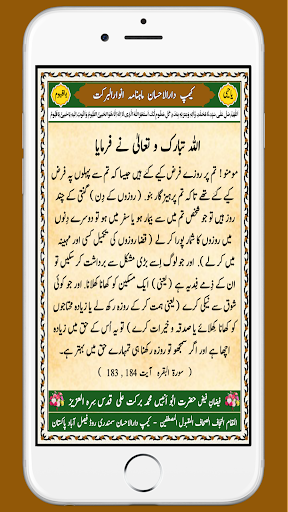 یا حیی
کیمپ دارالاحسان ماہنامہ انوارالبرکت
یا قیوم
اللہ تبارک و تعالیٰ نے فرمایا
مومنو! تم پر روزے فرض کیے گئے ہیں جیسا کہ تم سے پہلوں پہ فرض
کیے گئے تھے تاکہ تم پرہیز گار بنو۔ (روزوں کے دن) گنتی کے چند
روز ہیں تو جو شخص تم میں سے بیمار ہو یا سفر میں ہو تو دوسرے دنوں
میں روزوں کا شمار پورا کر لے ( قضا روزوں کی تکمیل کسی اور مہینہ
میں کر لے ). اور جو لوگ اِسے بڑی مشکل سے برداشت کر سکیں
تو اسکا فدیہ ہے ( یعنی ) ایک مسکین کو کھانا کھلانا. اور جو کوئی
شوق سے نیکی کرے (یعنی ہمت کر کے روزہ رکھ لے یا زیادہ محتاجوں
کو کھانا کھلائے یا صدقہ و خیرات کرے ) تو یہ اُس کے حق میں زیادہ
اچھا ہے اور اگر سمجھو تو روزہ رکھنا ہی تمہارے حق میں بہتر ہے۔
( سورۃ البقرہ آیت 184 , 183 )
فیضانِ فیض حضرت ابو انیس محمد برکت علی قدس سرہ العزیز
المقام النجاف الصحاف المقبول المصطفین - کیمپ دارالاحسان سمندری روڈ فیصل آباد پاکستان